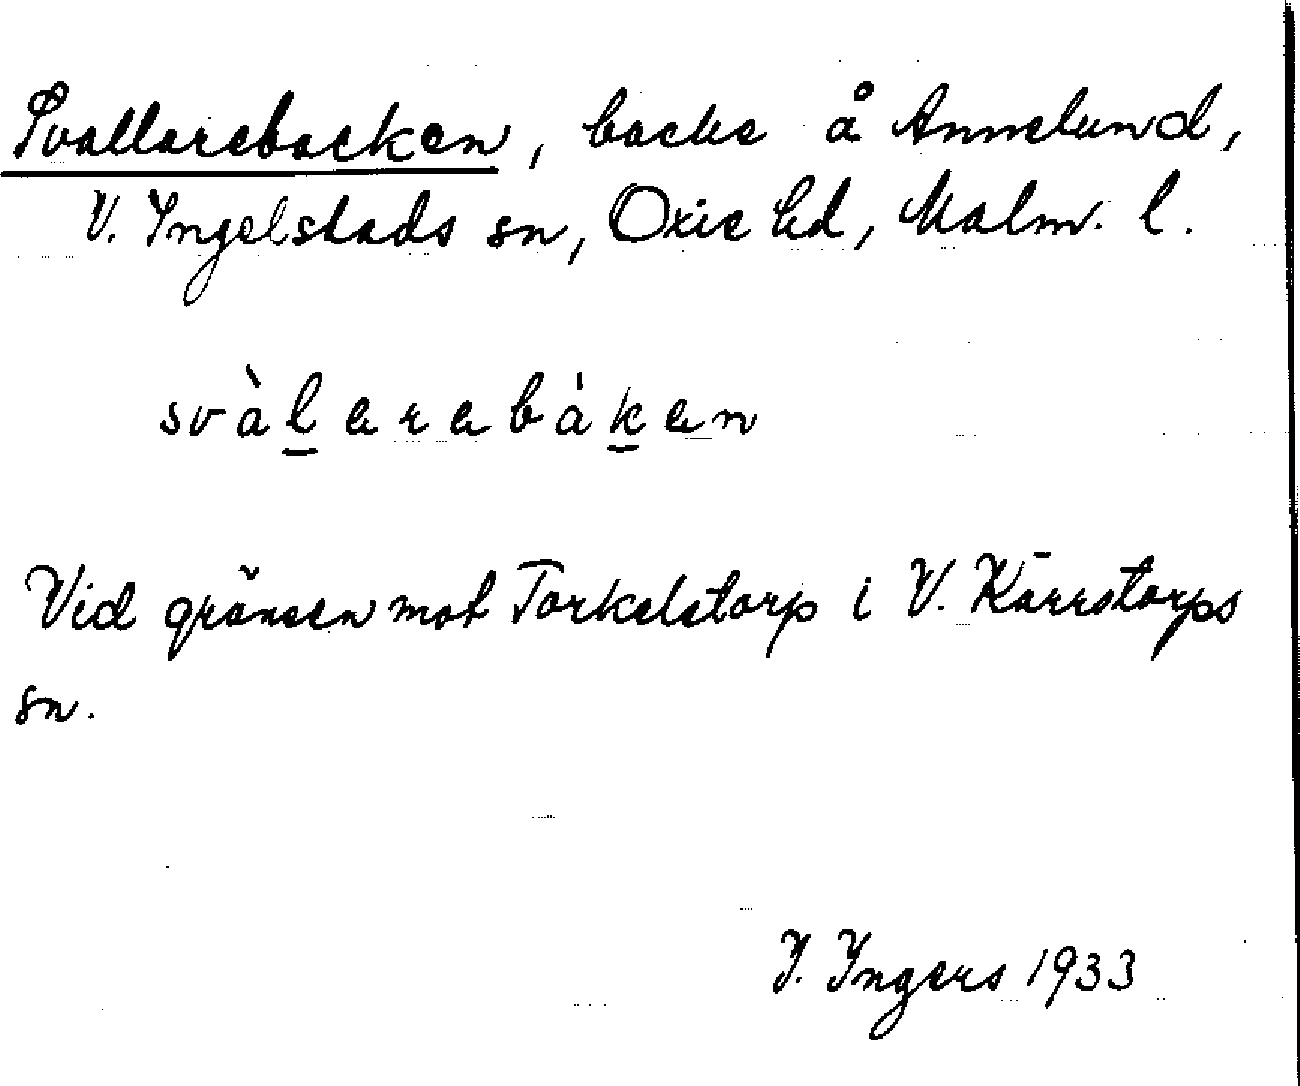 Svallarebacken, backe å Annelund,
V. Ingelstads sn, Oxie hd, Malm. l.
svàl̲arabák̲an
Vid gränsen mot Torkelstorp i V. Kärrstorps
sn.
I. Ingers 1933